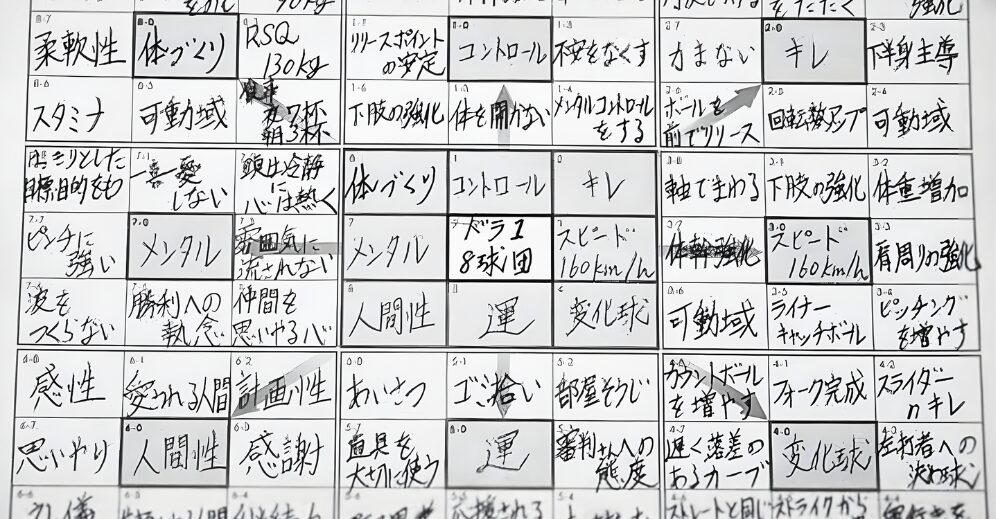 90kg
をたたく
強化
柔軟性
体づくり
RSQ
130kg
リリースポイント
の安定
コントロール
不安をなくす
力まない
キレ
下半身主導
スタミナ
可動域
食事
夜7杯
朝3杯
下肢の強化
体を開かない
メンタルコントロール
をする
ボールを
前でリリース
回転数アップ
可動域
はっきりとした
目標、目的をもつ
一喜一憂
しない
頭は冷静
に
心は熱く
体づくり
コントロール
キレ
軸でまわる
下肢の強化
体重増加
ピンチに
強い
メンタル
雰囲気に
流されない
メンタル
ドラ1
8球団
スピード
160km/h
体幹強化
スピード
160km/h
肩周りの強化
波を
つくらない
勝利への
執念
仲間を
思いやる心
人間性
運
変化球
可動域
ライナー
キャッチボール
ピッチング
を増やす
感性
愛される人間
計画性
あいさつ
ゴミ拾い
部屋そうじ
カウントボール
を増やす
フォーク完成
スライダー
のキレ
思いやり
人間性
感謝
道具を
大切に使う
運
審判さんへの
態度
遅く落差の
あるカーブ
変化球
左打者への
決め球
礼儀
応援される
ストレートと同じ
ストライクから